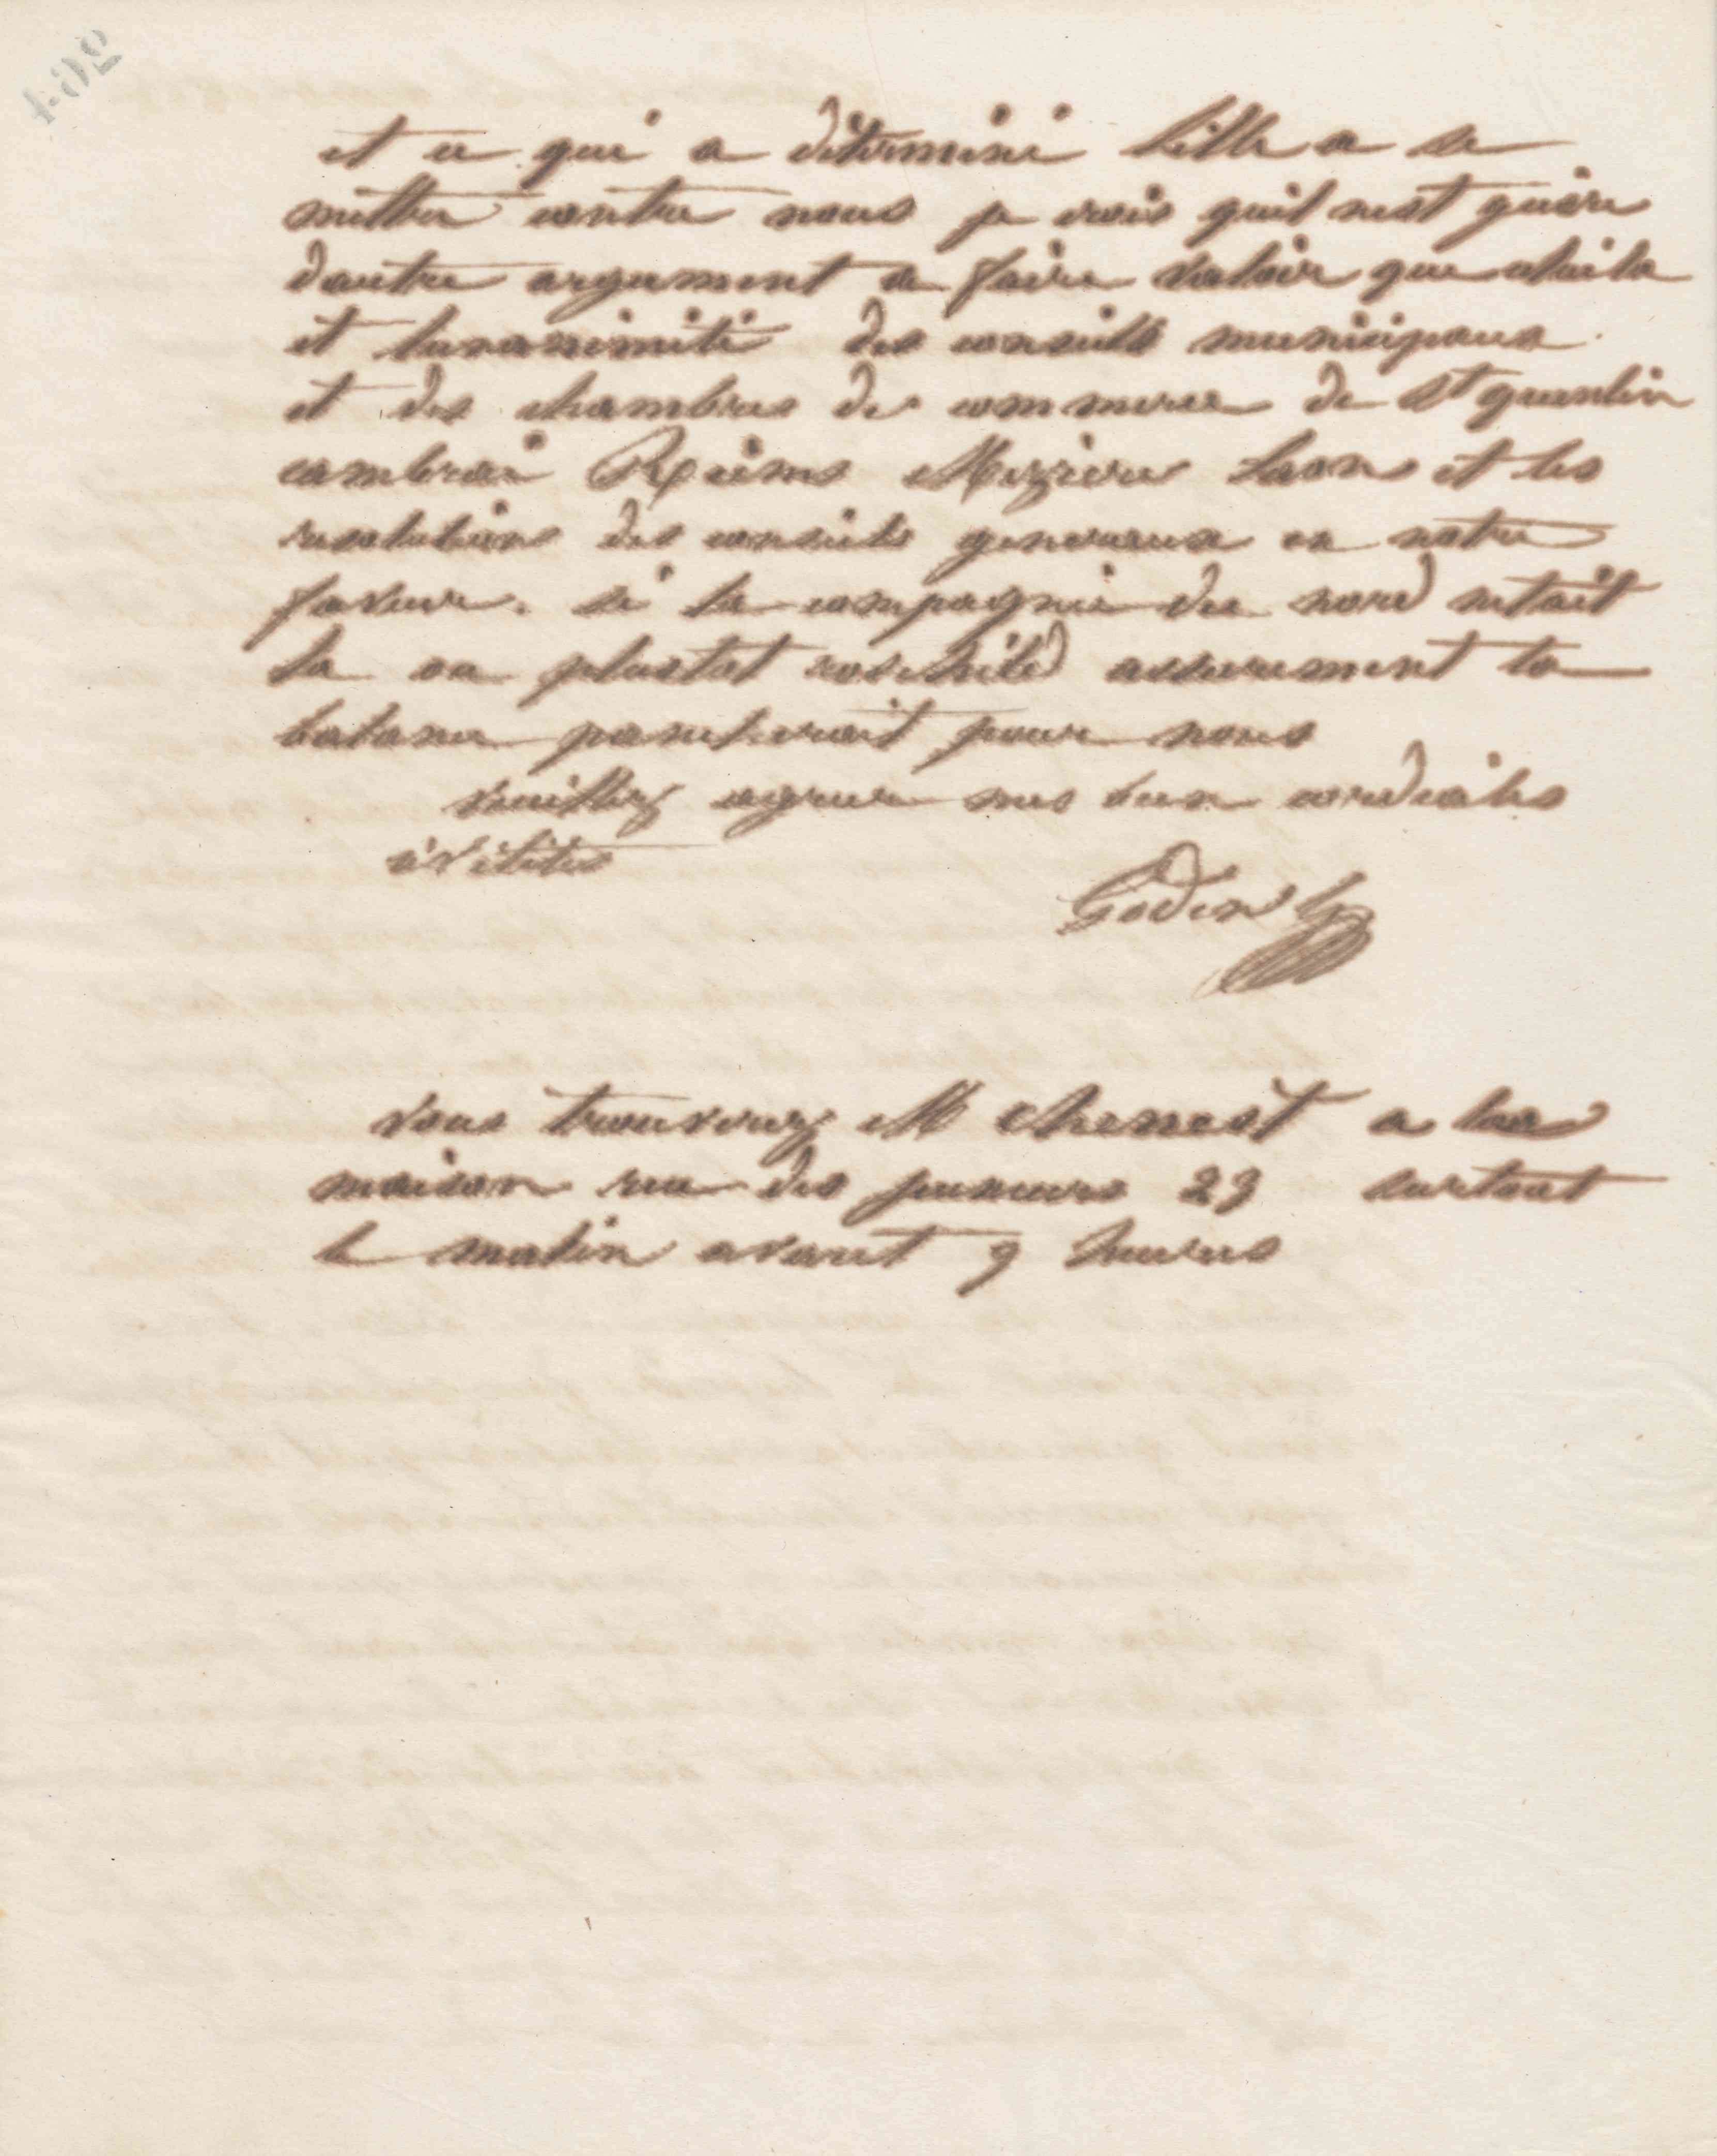 et ce qui a déterminé Lille a se
mettre contre nous je crois quil nest guère
dautre argument a faire valoir que celui la
et lunanimité des conseils municipaux
et des chambres de commerce de St quentin
cambrai Reims Mezieres Laon et les
resolutions des conseils generaux en notre
faveur. si la compagnie du nord netait
la ou plustot rotchild assurement la
balance pancherait pour nous
veuillez agreer mes bien cordiales
civilités
Godin
Vous trouverez M chenest a sa
maison rue des jeuneurs 23 surtout
le matin avant 9 heures